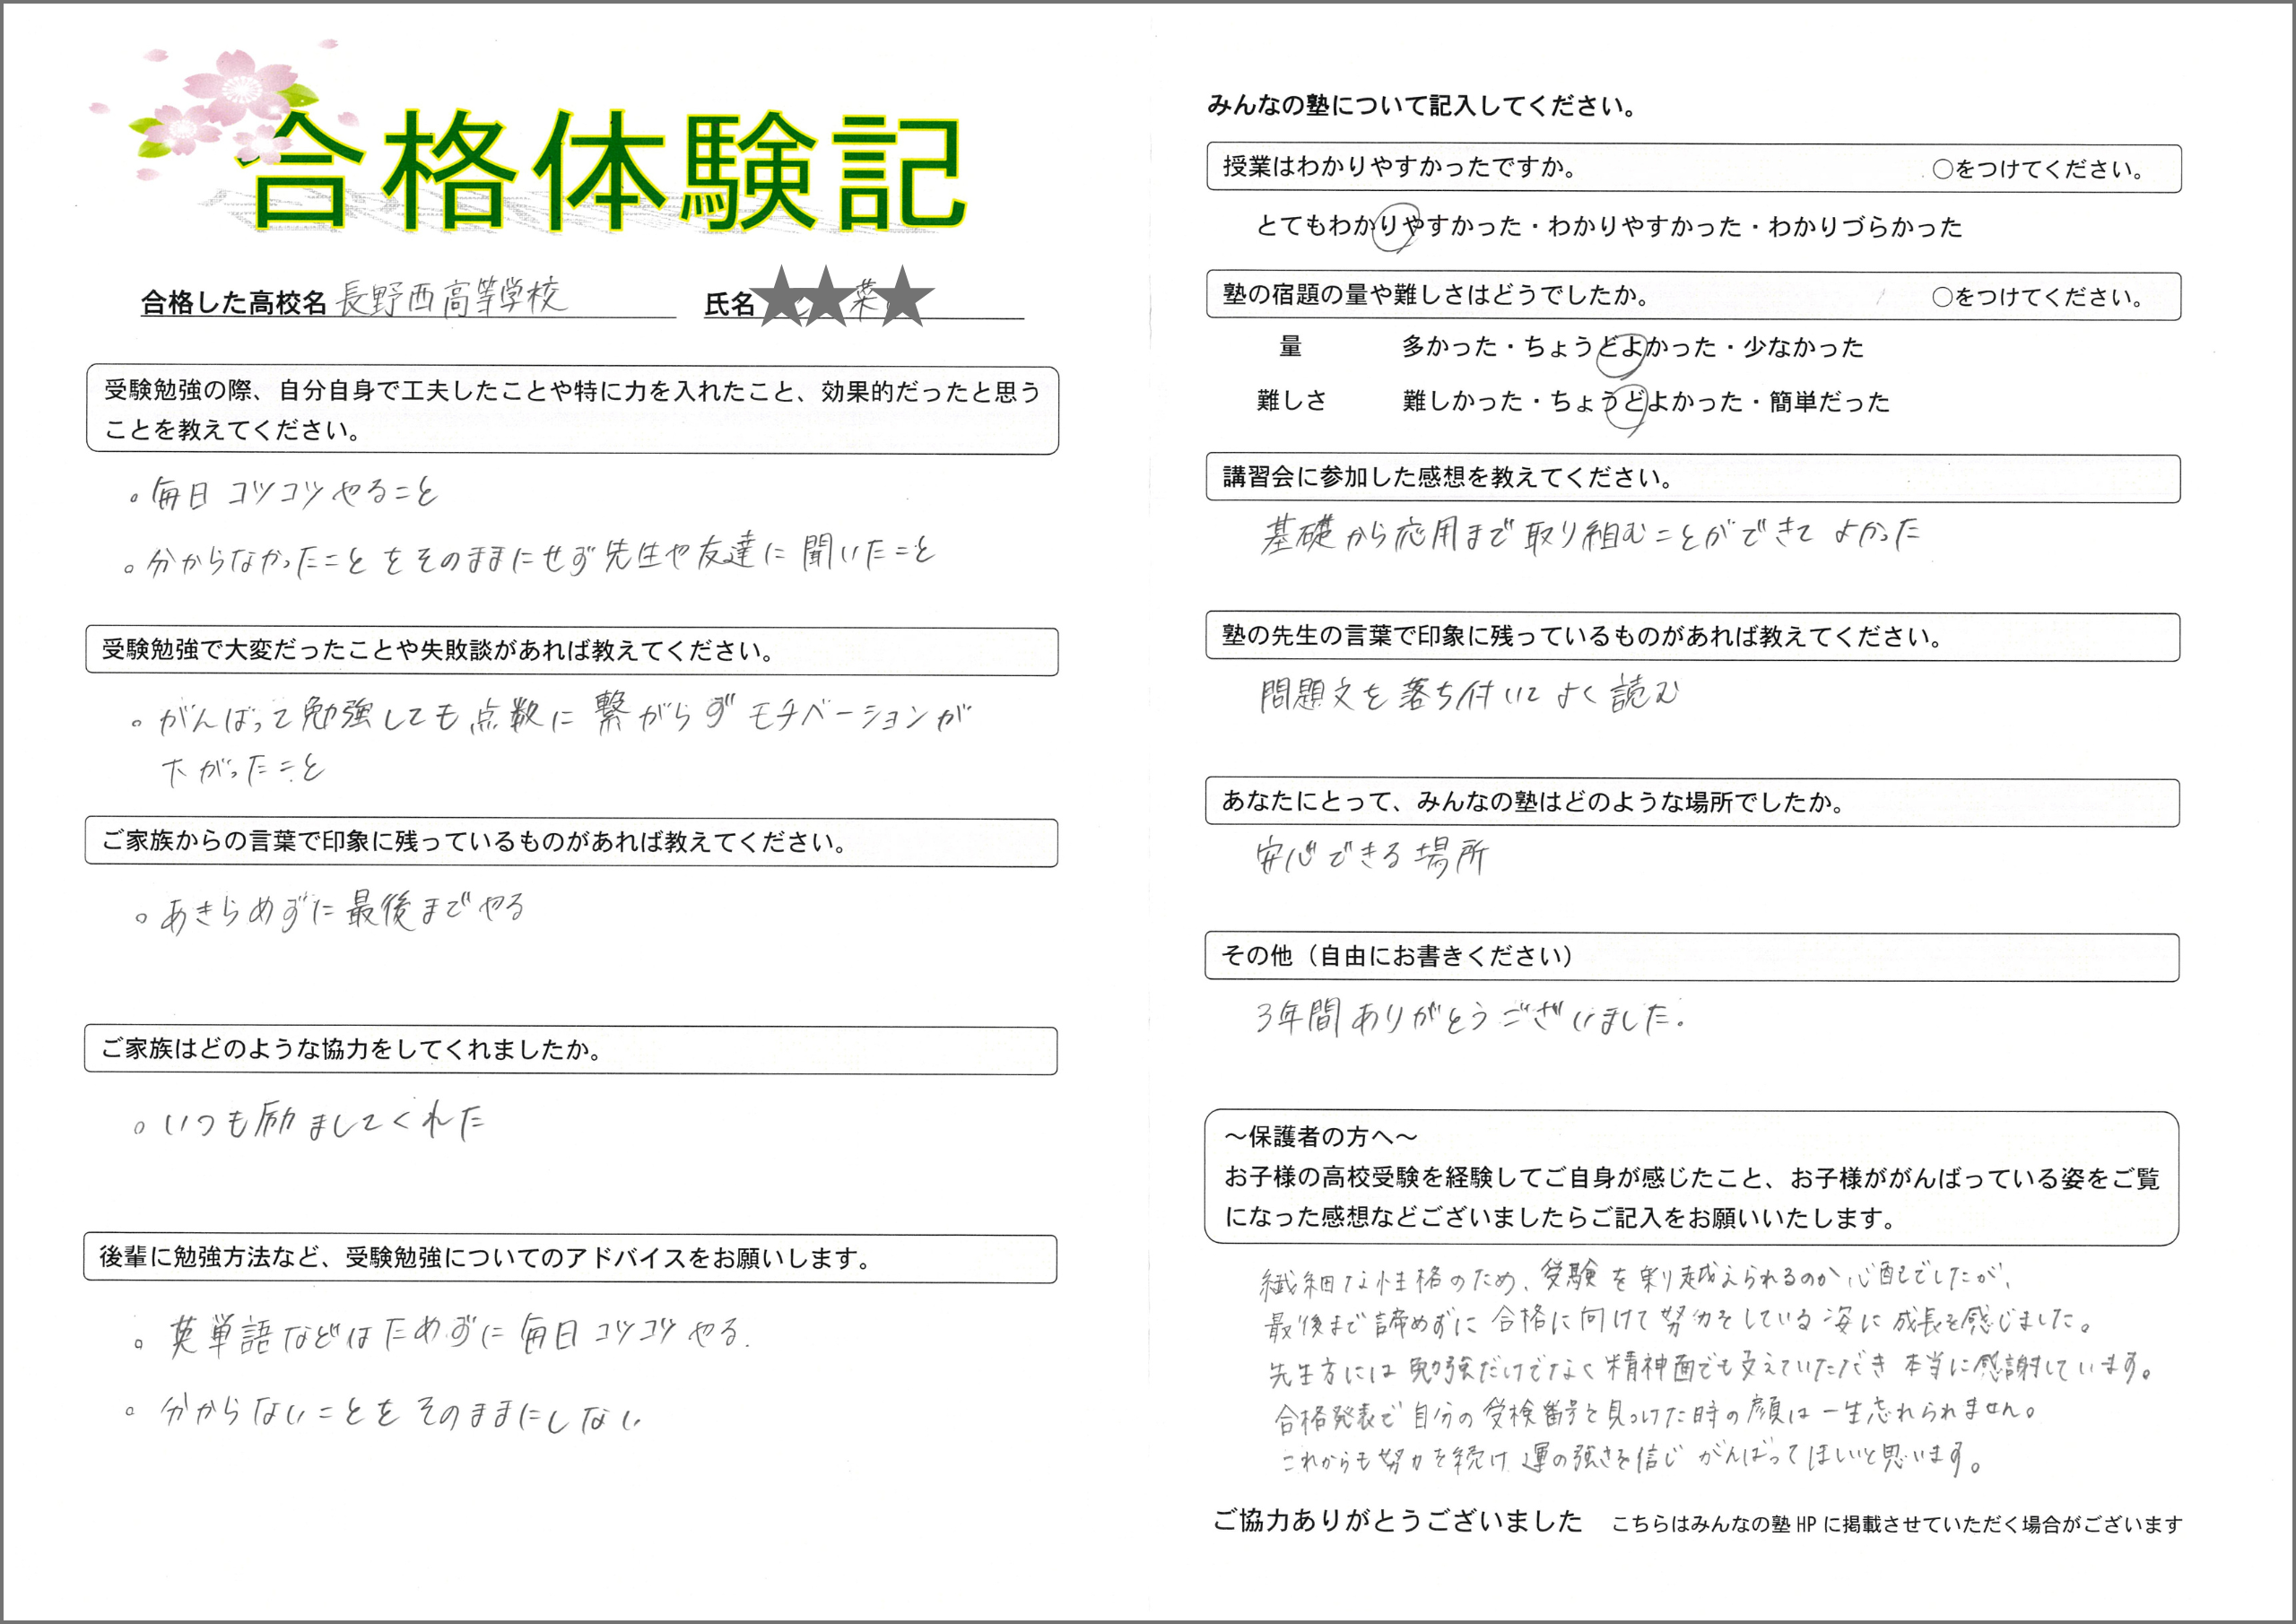 合格体験記
合格した高校名 長野西高等学校 氏名 菜
受験勉強の際、自分自身で工夫したことや特に力を入れたこと、効果的だったと思う
ことを教えてください。
。毎日コツコツやること
。分からなかったことをそのままにせず先生や友達に聞いたこと
受験勉強で大変だったことや失敗談があれば教えてください。
。がんばって勉強しても点数に繋がらずモチベーションが
下がったこと
ご家族からの言葉で印象に残っているものがあれば教えてください。
。あきらめずに最後までやる
ご家族はどのような協力をしてくれましたか。
。いつも励ましてくれた
後輩に勉強方法など、受験勉強についてのアドバイスをお願いします。
。英単語などはためずに毎日コツコツやる.
。分からないことをそのままにしない
みんなの塾について記入してください。
授業はわかりやすかったですか。 ○をつけてください。
とてもわかりやすかった・わかりやすかった・わかりづらかった
塾の宿題の量や難しさはどうでしたか。 ○をつけてください。
量 多かった・ちょうどよかった・少なかった
難しさ 難しかった・ちょうどよかった・簡単だった
講習会に参加した感想を教えてください。
基礎から応用まで取り組むことができてよかった
塾の先生の言葉で印象に残っているものがあれば教えてください。
問題文を落ち付いてよく読む
あなたにとって、みんなの塾はどのような場所でしたか。
安心できる場所
その他（自由にお書きください）
3年間ありがとうございました.
～保護者の方へ～
お子様の高校受験を経験してご自身が感じたこと、お子様ががんばっている姿をご覧
になった感想などございましたらご記入をお願いいたします。
繊細な性格のため、受験を乗り越えられるのか心配でしたが、
最後まで諦めずに合格に向けて努力をしている姿に成長を感じました。
先生方には勉強だけでなく精神面でも支えていただき本当に感謝しています。
合格発表で自分の受検番号を見つけた時の顔は一生忘れられません。
これからも努力を続け運の強さを信じがんばってほしいと思います。
ご協力ありがとうございました こちらはみんなの塾 HP に掲載させていただく場合がございます